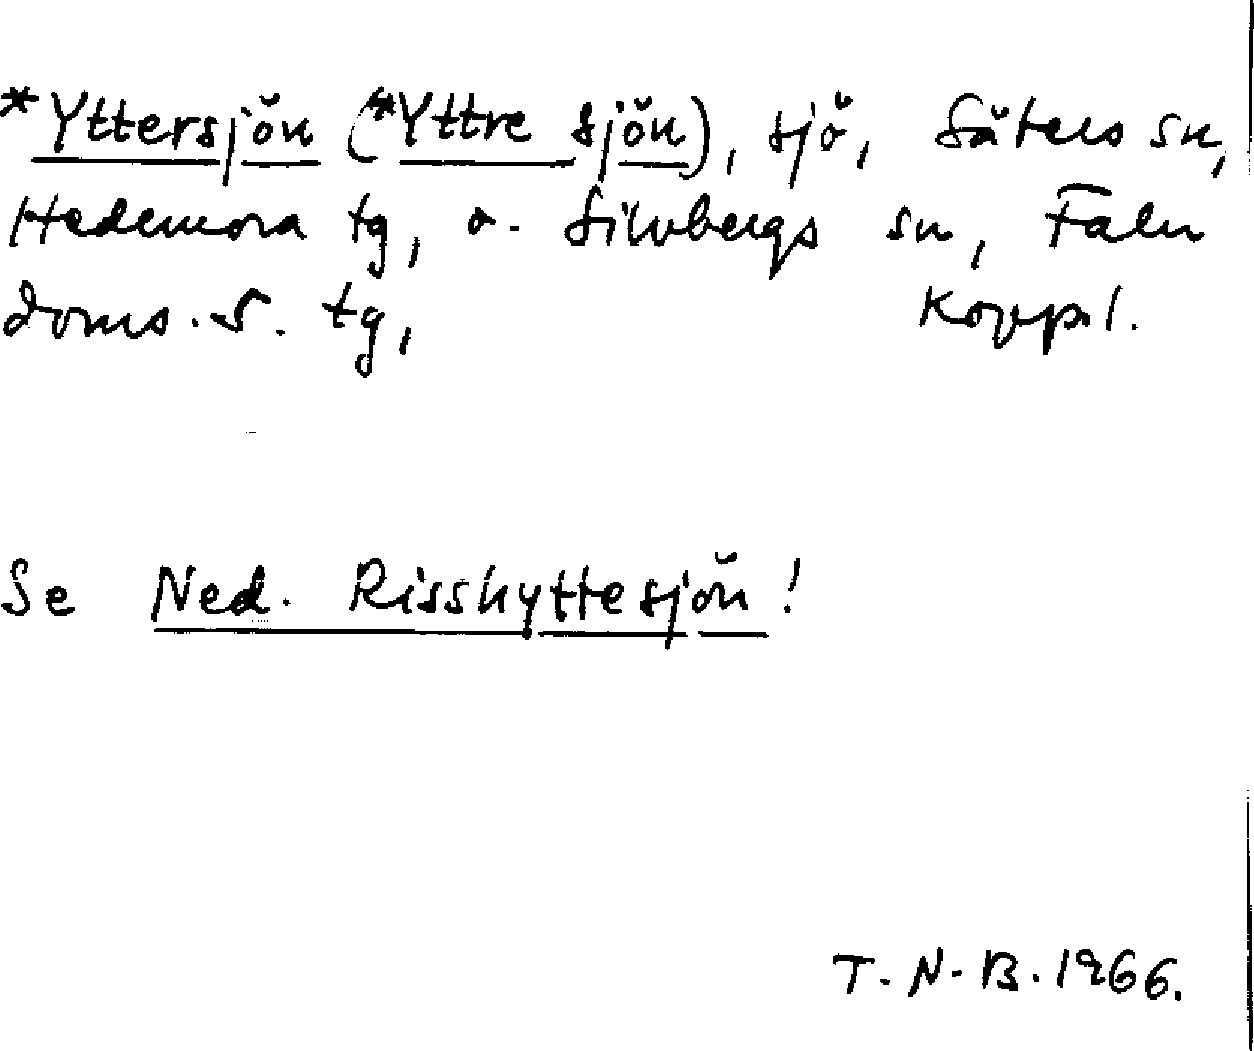 *Yttersjön (*Yttre sjön), sjö, Säters sn,
Hedemora tg, o. Silvbergs sn, Falu
doms. s. tg, Koppl.
Se Ned. Risshyttesjön!
T. N. B. 1966.